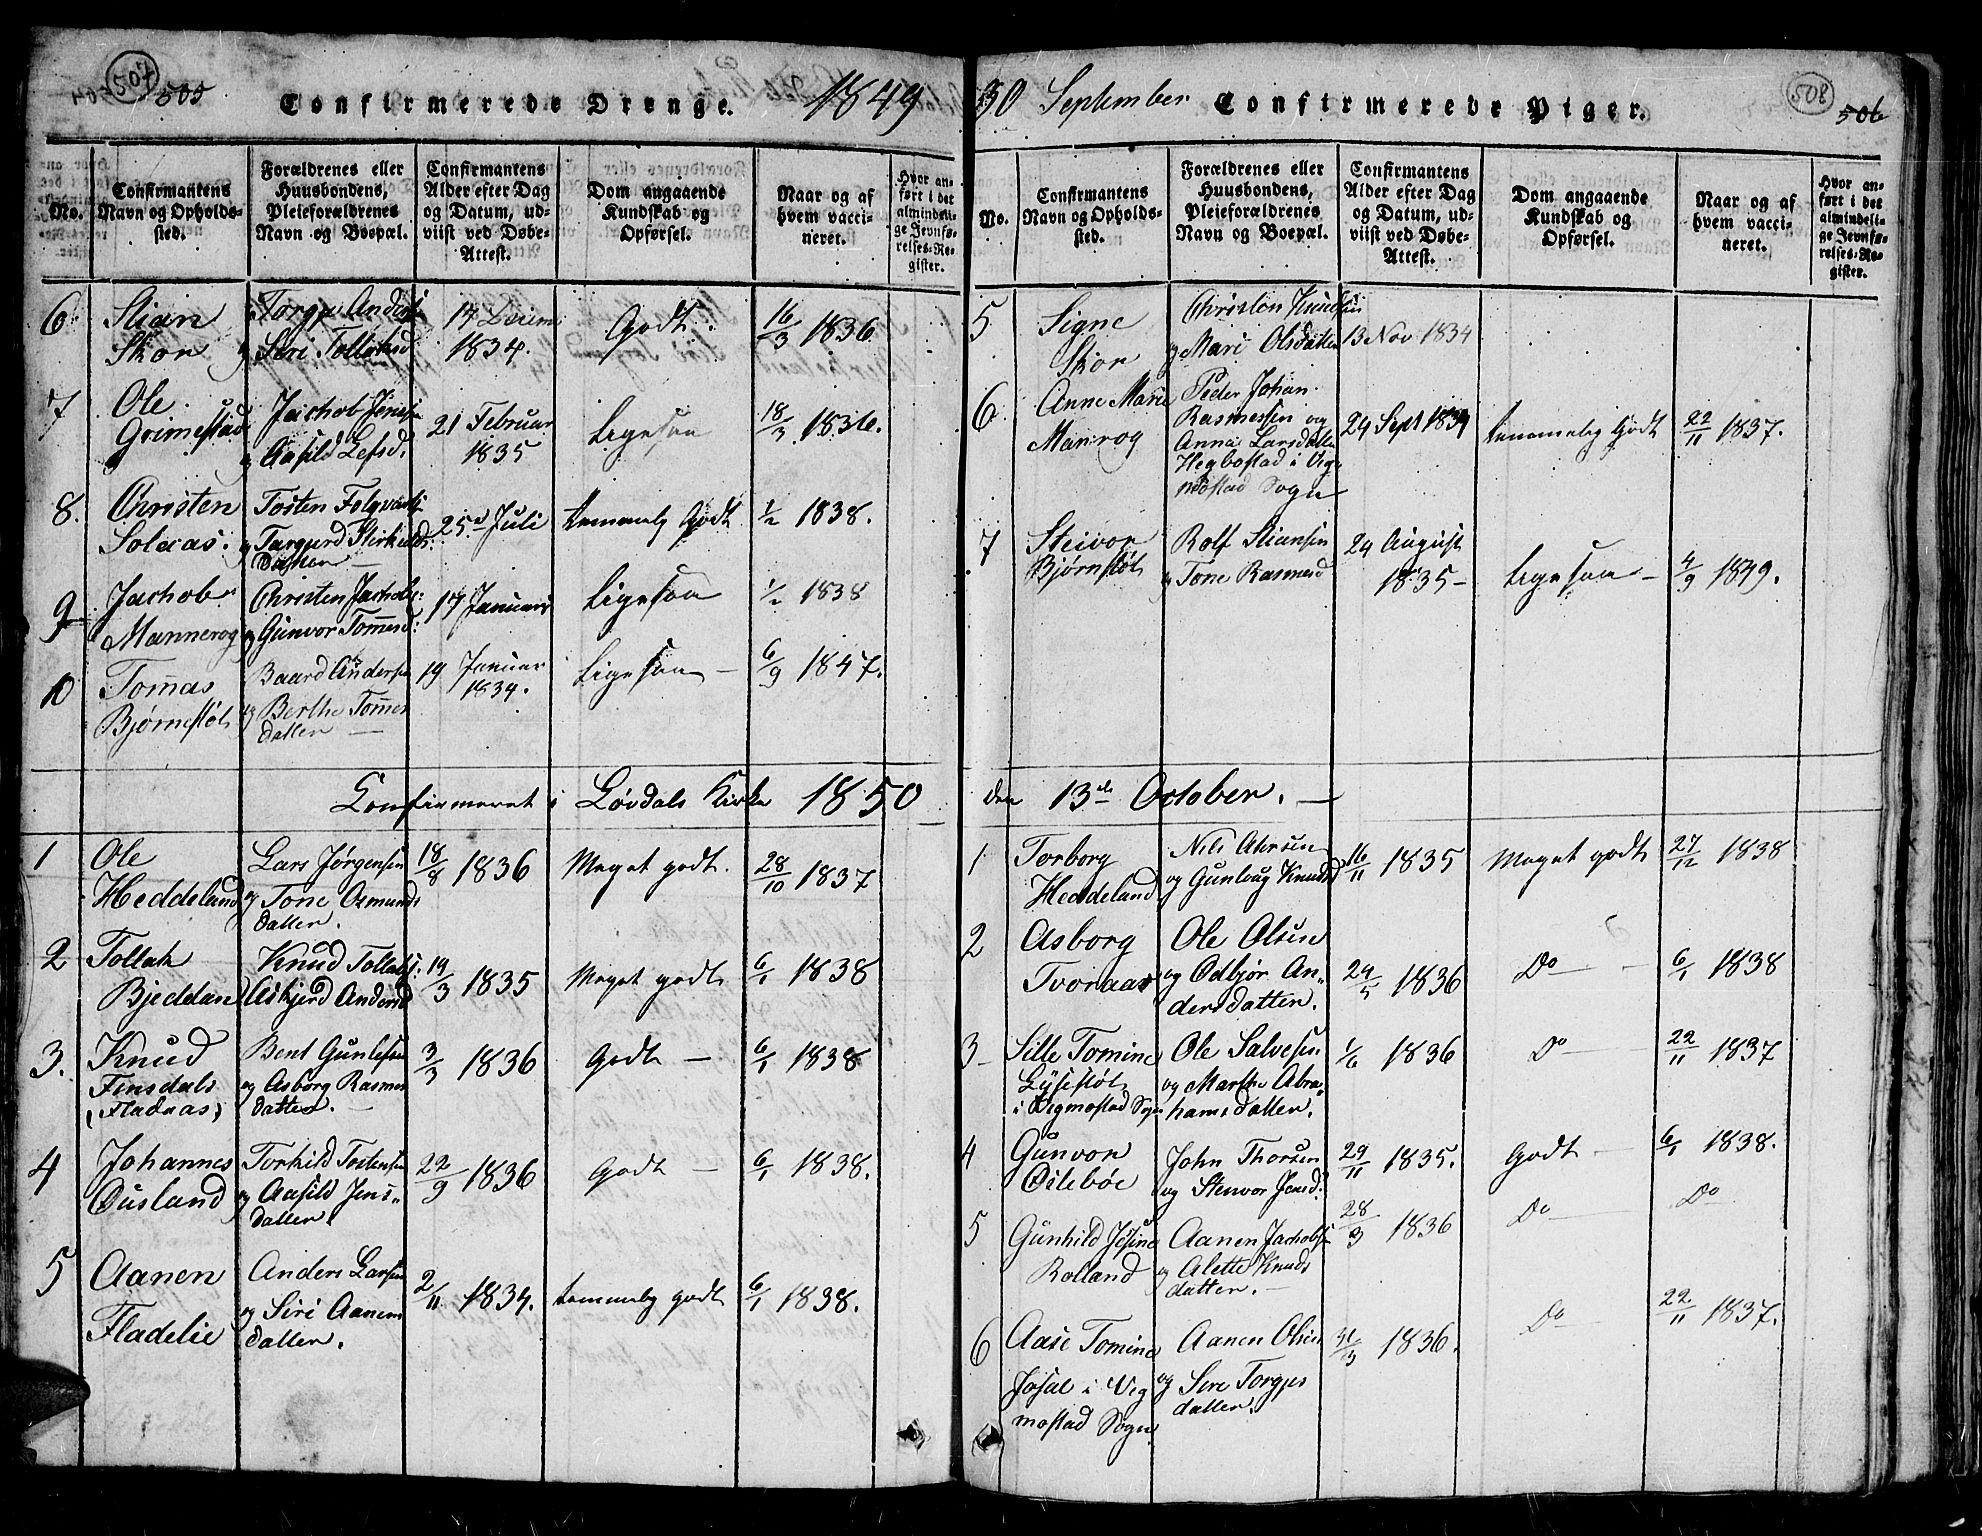 507 505 Confirmerede Drenge. 1849
No.
Confirmantens Navn og Opholds-sted.
Forældrenes eller Huusbondens, Pleieforældrenes Navn og Boepæl.
Confirmantens Alder efter Dag og Datum, ud-viist ved Døbe-Attest.
Dom angaaende Kundskab og Opførsel.
Naar og af hvem vacci-neret.
Hvor an-ført i det almindeli-ge Jevnfø-relses-Re-gister.
6 Stian Torgju Anders 17 1834. Godt. 16/3 1836
Skor og Siri
7 Ole Jachob Jens 21 Februar 1835 Ligesaa 18/3 1836.
Grimestad og Aasild Lefsd.
8. Christen Tosten 25d Juli temmelig Godt 1/2 1838.
Solaas. og Datter
9 Jachob Christen Jachobs: 17 Januar Ligesaa 1/2 1838
Mannerog og Gunvor Tomesd:
10 Tomas Baard Anders 19 Januar 1834. Ligesaa 6/9 1847.
Bjørnestøl og Berthe Tomes
datter
Confirmeret i Løvdals Kirke 1850
1 Ole Lars Jørgensen 18/8 1836 Meget godt. 28/10 1837
Heddeland og Tone Osmunds
datter.
2 Tollak Knud Tollaks: 19/3 1835 Meget godt 6/1 1838
Bjeddan Askjerd Andersd
3. Knud Bent Gunlefsen 3/3 1836 Godt 6/1 1838
Finsdals og Asborg Rasmus
(Fladaas) datter.
4 Johannes Torkild Tostensen 22/9 1836 Godt 6/1 1838.
Ousland og Aasild Jens-
datter
5 Aanen Anders Larsen 2/11 1834. temmelig godt 6/1 1838.
Fladelie og Siri Aanens
datter.
30 September Confirmerede Piger. 508 506
No.
Confirmantens Navn og Opholds-sted.
Forældrenes eller Huusbondens, Pleieforældrenes Navn og Boepæl.
Confirmantens Alder efter Dag og Datum, ud-viist ved Døbe-Attest.
Dom angaaende Kundskab og Opførsel.
Naar og af hvem vacci-neret.
Hvor an-ført i det almindeli-ge Jevnfø-relses-Re-gister.
5 Signe Christen Knudsen
Skor og Mari Olsdatter 13 Nov 1834
6 Anne Marie Peder Johan
Manrog Rasmussen og 24 Sept 1834 temmelig Godt 22/11 1837.
Anna Larsdatter
Hegbostad i Vig-
mostad Sogn
7 Steivor Rolf Stiansen 24 August 1835 Ligesaa 4/9 1849.
Bjørnstøl og Tone Rasmusd
den 13de October.
1 Torborg Nils 16/11 1835 Meget godt 27/12 1838
Heddeland og Gunloug Knudsd
2 Asborg Ole Olsen
Tvoraas og Odbjør An- 24/5 1836 Do 6/1 1838
dersdatter.
3 Sille Tomine Ole Salvesen 1/6 1836 Do 22/11 1837
Lysestøl og Marthe Abra-
i Vigmostad Sogn hamsdatter.
4 Gunvor John Thorsen 29/11 1835. Godt 6/1 1838.
Oilebøe og Stenvor Jensd:
5 Gunhild Josine Aanen Jachobsen 28/3 1836 Do Do
Rolland og Alette Knuds
datter.
6 Aase Tomine Aanen Olsen 31/3 1836. Do 22/11 1837.
Josal i Vig og Sire Torgjus
mostad Sogn. datter.